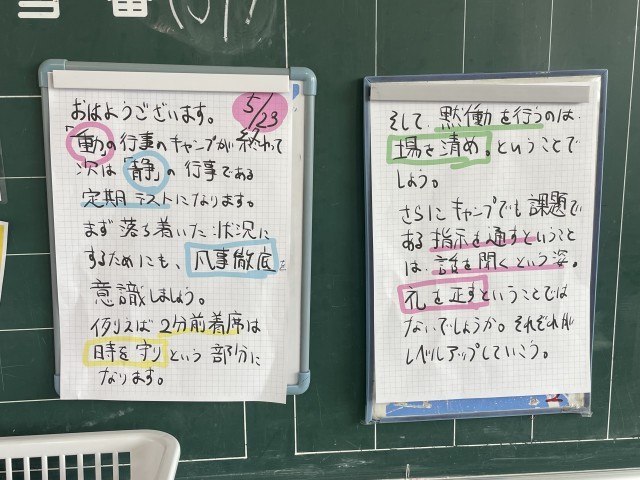 当番
おはようございます。
5/23
「動」の行事のキャンプが終わって
次は「静」の行事である
定期テストになります。
まず落ち着いた状況に
するためにも、凡事徹底を
意識しましょう。
例えば2分前着席は
時を守りという部分に
なります。
そして、黙働を行うのは、
場を清め。ということで
しょう。
さらにキャンプでも課題で
ある指示を通すということ
は、話を聞くという姿。
礼を正すということでは
ないでしょうか。それぞれが
レベルアップしていこう。